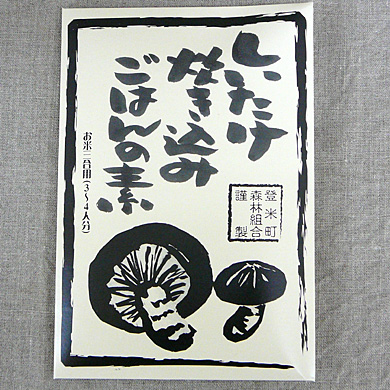 しいたけ
炊き込み
ごはんの素
お米二合用(3～4人分)
登米町
森林組合
謹製